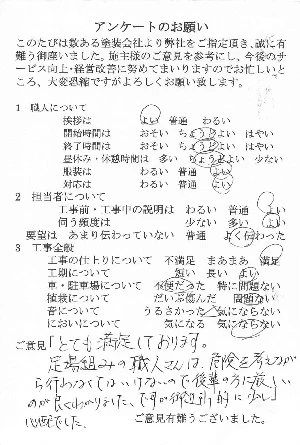 アンケートのお願い
このたびは数ある塗装会社より弊社をご指定頂き、誠に有
難う御座いました。施主様のご意見を参考にし、今後のサ
ービス向上・経営改善に努めてまいりますのでお忙しいと
ころ、大変恐縮ですがよろしくお願い致します。
1 職人について
挨拶は よい 普通 わるい
開始時間は おそい ちょうどよい はやい
終了時間は おそい ちょうどよい はやい
昼休み・休憩時間は 多い ちょうどよい 少ない
服装は わるい 普通 よい
対応は わるい 普通 よい
2 担当者について
工事前・工事中の説明は わるい 普通 よい
伺う頻度は 少ない 多い よい
要望は あまり伝わっていない 普通 よく伝わった
3 工事全般
工事の仕上りについて 不満足 まあまあ 満足
工期について 短い 長い よい
車・駐車場について 不便だった 特に問題ない
植栽について だいぶ傷んだ 問題ない
音について うるさかった 気にならない
においについて 気になる 気にならない
ご意見「とても満足しております。
足場組みの職人さんは、危険を考えなが
ら行わなくてはいけないので後輩の方に厳しい
のが良くわかりました、ですが 的に少し
心配でした。 ご意見有難うございました。